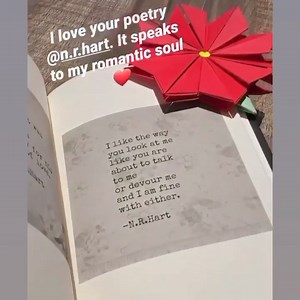 I love your poetry
@n.r.hart. It speaks
to my romantic soul
I like the way
you look at me
like you are
about to talk
to me
or devour me
and I am fine
with either.
-N.R.Hart